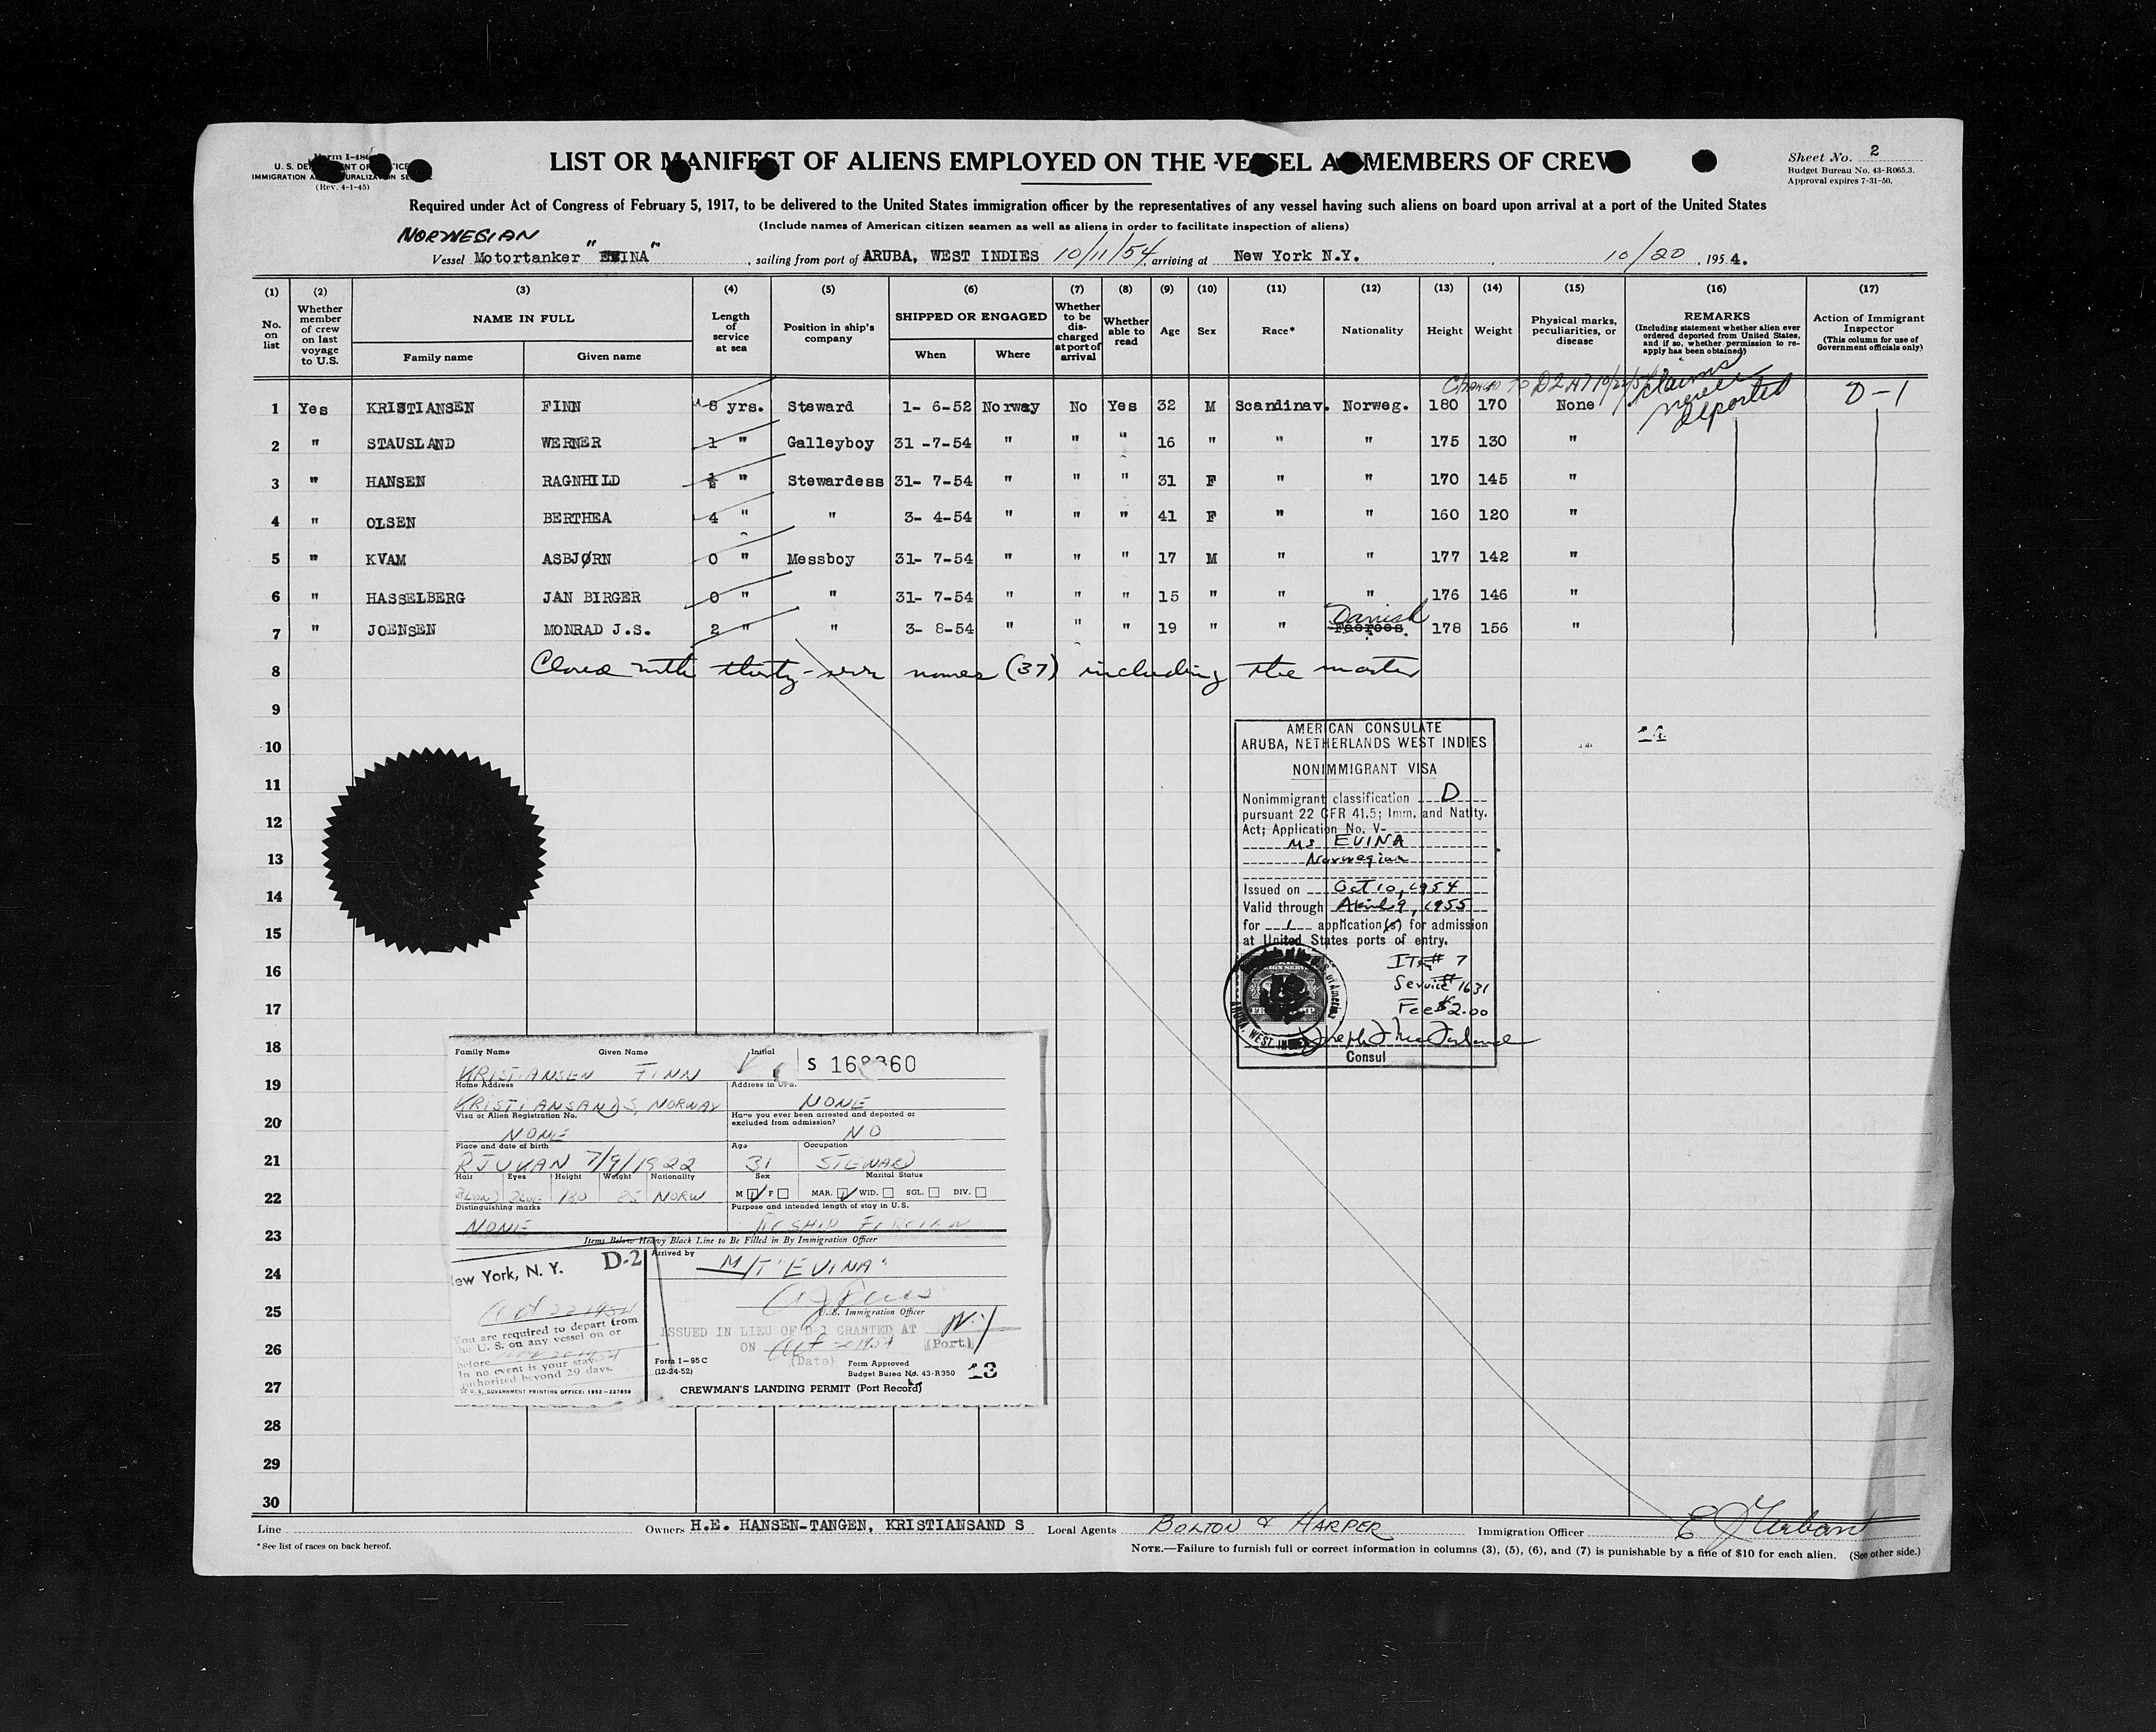 Form I-48
U. S. DEPARTMENT OF JUSTICE
IMMIGRATION AND NATURALIZATION SERVICE
(Rev. 4-1-45)
LIST OR MANIFEST OF ALIENS EMPLOYED ON THE VESSEL AS MEMBERS OF CREW
Sheet No. 2
Budget Bureau No. 43-R065.3.
Approval expires 7-31-50.
Required under Act of Congress of February 5, 1917, to be delivered to the United States immigration officer by the representatives of any vessel having such aliens on board upon arrival at a port of the United States
(Include names of American citizen seamen as well as aliens in order to facilitate inspection of aliens)
NORWEGIAN
Vessel Motortanker "EVINA", sailing from port of ARUBA, WEST INDIES 10/11/54, arriving at New York N.Y. 10/20, 1954.
(1) (2) (3) (4) (5) (6) (7) (8) (9) (10) (11) (12) (13) (14) (15) (16) (17)
No. on list
Whether member of crew on last voyage to U.S.
NAME IN FULL
Family name Given name
Length of service at sea
Position in ship's company
SHIPPED OR ENGAGED
When Where
Whether to be discharged at port of arrival
Whether able to read
Age Sex Race* Nationality Height Weight
Physical marks, peculiarities, or disease
REMARKS
(Including statement whether alien ever ordered deported from United States, and if so, whether permission to reapply has been obtained)
Action of Immigrant Inspector
(This column for use of Government officials only)
Changed to D2 AT 10/22/54
claims never deported
1 Yes KRISTIANSEN FINN 6 yrs. Steward 1- 6-52 Norway No Yes 32 M Scandinav. Norweg. 180 170 None D-1
2 " STAUSLAND WERNER 1 " Galleyboy 31 -7-54 " " " 16 " " " 175 130 "
3 " HANSEN RAGNHILD ½ " Stewardess 31- 7-54 " " " 31 F " " 170 145 "
4 " OLSEN BERTHEA 4 " " 3- 4-54 " " " 41 F " " 160 120 "
5 " KVAM ASBJØRN 0 " Messboy 31- 7-54 " " " 17 M " " 177 142 "
6 " HASSELBERG JAN BIRGER 0 " " 31- 7-54 " " " 15 " " " 176 146 "
7 " JOENSEN MONRAD J.S. 2 " " 3- 8-54 " " " 19 " " Faeroes. Danish 178 156 "
8 Closed with thirty-seven names (37) including the master
9
10
11
12
13
14
15
16
17
18
19
20
21
22
23
24
25
26
27
28
29
30
AMERICAN CONSULATE
ARUBA, NETHERLANDS WEST INDIES
NONIMMIGRANT VISA
Nonimmigrant classification D
pursuant 22 CFR 41.5; Imm. and Natlty.
Act; Application No. V-
MS EVINA
Norwegian
Issued on Oct 10, 1954
Valid through April 9, 1955
for 1 application(s) for admission
at United States ports of entry.
IT# 7
Service # 1631
Fee $2.00
Consul
Family Name Given Name Initial
KRISTIANSEN FINN
Home Address Address in U.S.
KRISTIANSAND S, NORWAY NONE
Visa or Alien Registration No.
Have you ever been arrested and deported or excluded from admission?
NONE NO
Place and date of birth Age Occupation
RJUKAN 7/9/1922 31 STEWARD
Hair Eyes Height Weight Nationality Sex Marital Status
BLOND BLUE 180 85 NORW M F MAR. WID. SGL. DIV.
Distinguishing marks Purpose and intended length of stay in U.S.
NONE RESHIP FOREIGN
Items Below Heavy Black Line to Be Filled in By Immigration Officer
New York, N. Y. D-2
Oct 22 1954
You are required to depart from
the U. S. on any vessel on or
before
In no event is your stay
authorized beyond 29 days.
☆ U. S. GOVERNMENT PRINTING OFFICE: 1952—227850
Arrived by
M/T "EVINA"
U.S. Immigration Officer
ISSUED IN LIEU OF D-1 GRANTED AT NY
ON Oct 20 1954 (Port)
(Date)
Form I-95C
(12-24-52)
Form Approved
Budget Bureau No. 43-R350
13
CREWMAN'S LANDING PERMIT (Port Record)
Line
Owners H.E. HANSEN-TANGEN, KRISTIANSAND S Local Agents BOLTON & HARPER Immigration Officer E J Urban
* See list of races on back hereof.
NOTE.—Failure to furnish full or correct information in columns (3), (5), (6), and (7) is punishable by a fine of $10 for each alien. (See other side.)